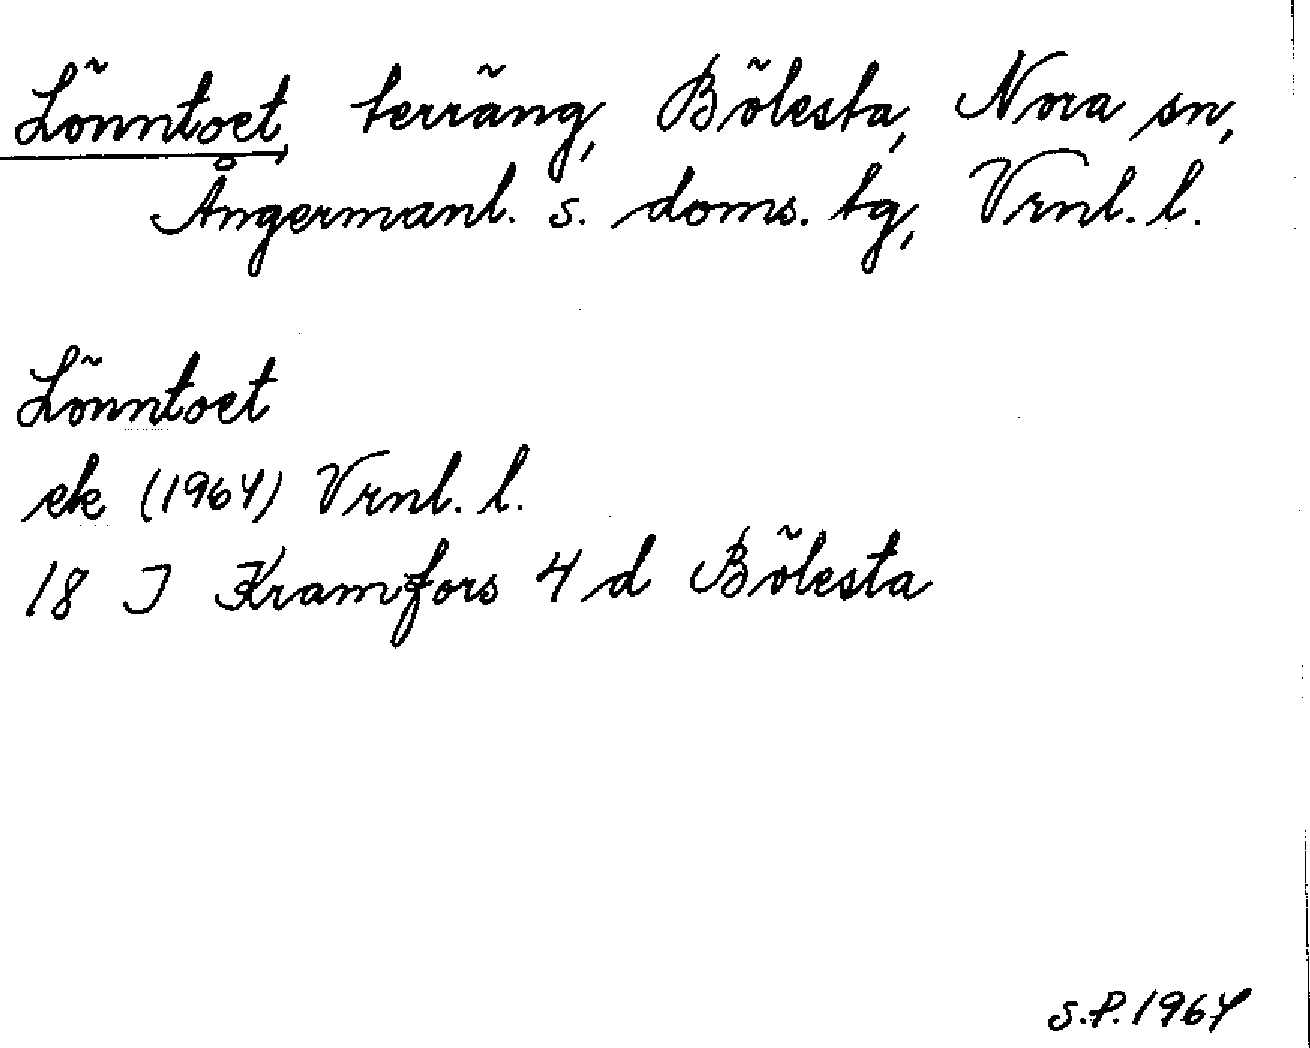 Lönntoet, terräng, Bölesta, Nora sn,
Ångermanl. s. doms. tg, Vrnl. l.
Lönntoet
ek (1964) Vrnl. l.
18 I Kramfors 4 d Bölesta
S.P. 1964